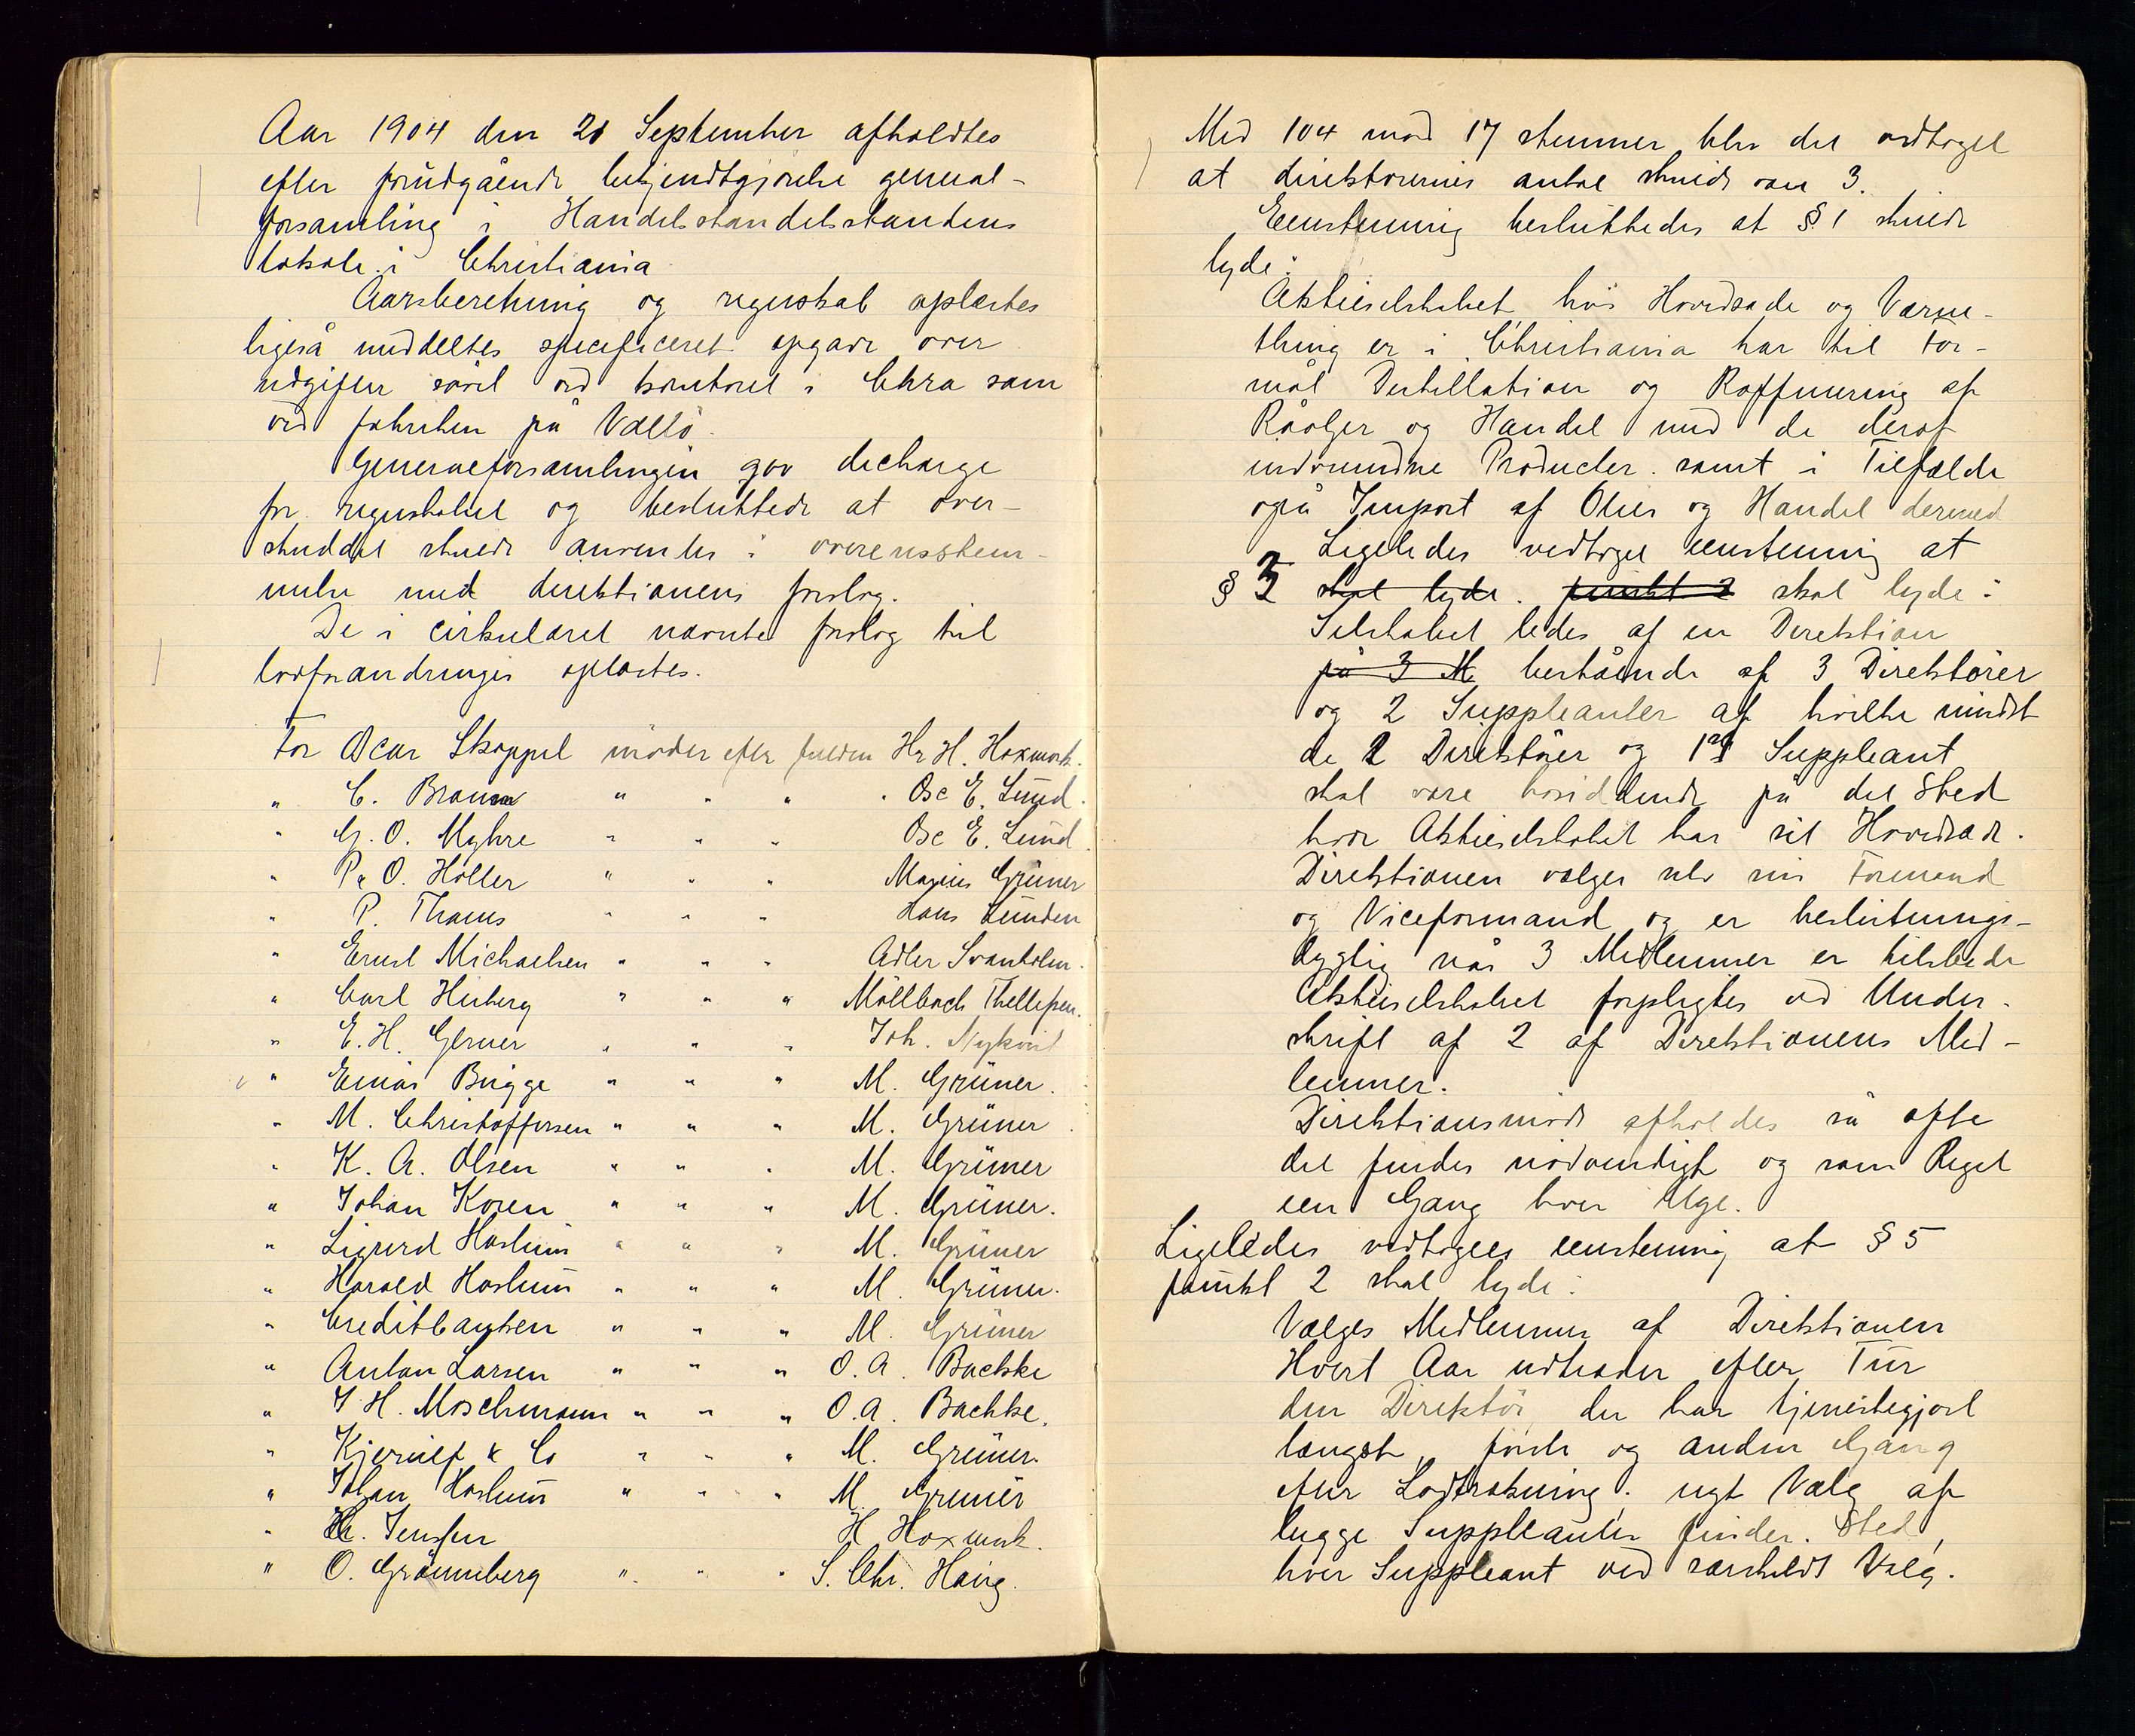 Aar 1904 den 21 September afholdtes
efter forudgående bekjendtgjörelse general-
forsamling i Handelsstandelsstandens
lokale i Christiania
Aarsberetning og regnskab oplæstes
ligeså meddeltes specificeret opgave over
udgifter såvel ved kontoret i Chra som
ved fabriken på Vallö.
Generalforsamlingen gav decharge
for regnskabet og besluttede at over-
skuddet skulde anvendes i overensstem-
melse med direktionens forslag.
De i cirkulæret nævnte forslag til
lovforandringer oplæstes.
For Oscar Skoppel möder efter fuldm Hr H. Hoxmark.
" C. Braun " " " Osc E. Lund.
" G. O. Myhre " " " Osc E. Lund.
" P. O. Holler " " " Magnus Grüner
" P. Thams " " " Hans Lunden
" Ernst Michaelsen " " " Adler Svanholm.
" Carl Heiberg " " " Möllbach Thellefsen.
" E. H. Gerner " " " Joh. Nykvist
" Einar Brigge " " " M. Grüner.
" M. Christoffersen " " " M. Grüner.
" K. A. Olsen " " " M. Grüner
" Johan Koren " " " M. Grüner.
" Sigurd Haslum " " " M. Grüner
" Harald Haslum " " " M. Grüner.
" Creditbanken " " " M. Grüner
" Anton Larsen " " " O. A. Bachke
" J. H. Moschmann " " " O. A. Bachke.
" Kjerulf & Co " " " M. Grüner.
" Johan Haslum " " " M. Grüner
" Chr. Jensen H Hoxmark.
" O. Grönneberg " " " S. Chr. Haug.
Med 104 mod 17 stemmer blev det vedtaget
at direktörernes antal skulde være 3.
Eenstemmig besluttedes at § 1 skulde
lyde:
Aktieselskabet hvis Hovedsæde og Værne-
thing er i Christiania har til For-
mål Destillation og Raffinering af
Råoljer og Handel med de deraf
indvundne Producter. samt i Tilfælde
også Import af Olier og Handel dermed
Ligeledes vedtoges eenstemmig at
§ 3 skal lyde. punkt 2 skal lyde:
Selskabet ledes af en Direktion
på 3 M bestående af 3 Direktörer
og 2 Suppleanter af hvilke mindst
de 2 Direktörer og 1 Suppleant
skal være bosiddende på det Sted
hvor Aktieselskabet har sit Hovedsæde.
Direktionen vælger selv sin Formand
og Viceformand og er beslutnings-
dygtig når 3 Medlemmer er tilstede
Aktieselskabet forpligtes ved Under-
skrift af 2 af Direktionens Med-
lemmer.
Direktionsmöde afholdes så ofte
det findes nödvendigt og som Regel
een Gang hver Uge.
Ligeledes vedtoges eenstemmig at § 5
punkt 2 skal lyde:
Vælges Medlemmer af Direktionen
Hvert Aar udtræder efter Tur
den Direktör, der har tjenestegjort
længst, förste og anden Gang
efter Lodtrækning. nyt Valg af
begge Suppleanter finder Sted,
hver Suppleant ved særskildt Valg.